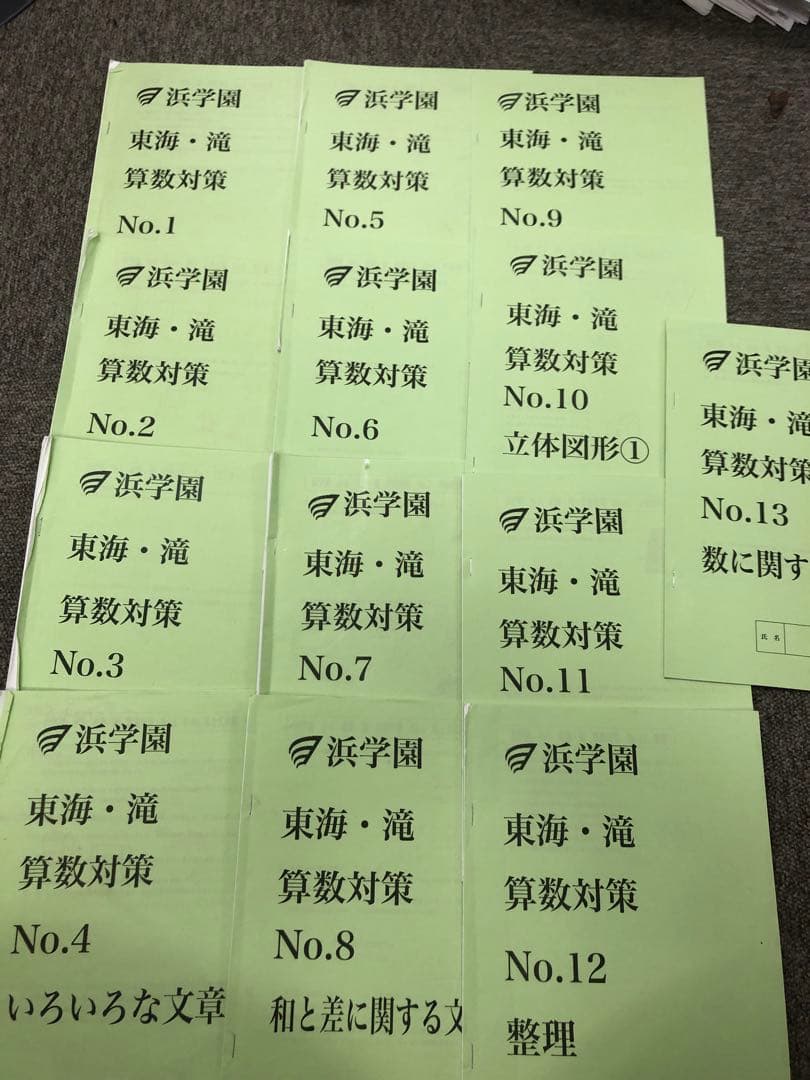 浜学園
東海・滝
算数対策
No.1
浜学園
東海・滝
算数対策
No.2
浜学園
東海・滝
算数対策
No.3
浜学園
東海・滝
算数対策
No.4
いろいろな文章
浜学園
東海・滝
算数対策
No.5
浜学園
東海・滝
算数対策
No.6
浜学園
東海・滝
算数対策
No.7
浜学園
東海・滝
算数対策
No.8
和と差に関する文
浜学園
東海・滝
算数対策
No.9
浜学園
東海・滝
算数対策
No.10
立体図形①
浜学園
東海・滝
算数対策
No.11
浜学園
東海・滝
算数対策
No.12
整理
浜学園
東海・滝
算数対策
No.13
数に関す
氏名